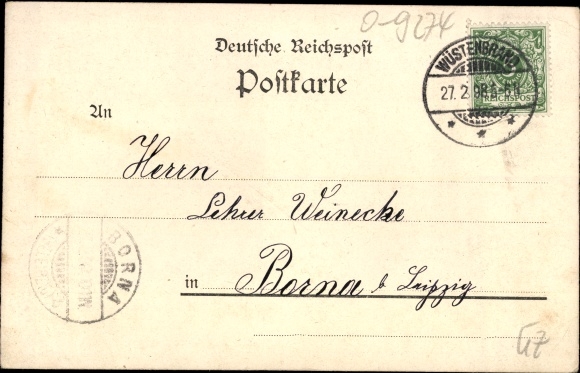 0-9274
Deutsche Reichspost
Postkarte
WÜSTENBRAND
27. 2. 98
REICHSPOST
An
Herrn
Lehrer Weinecke
in Borna b Leipzig
BORNA